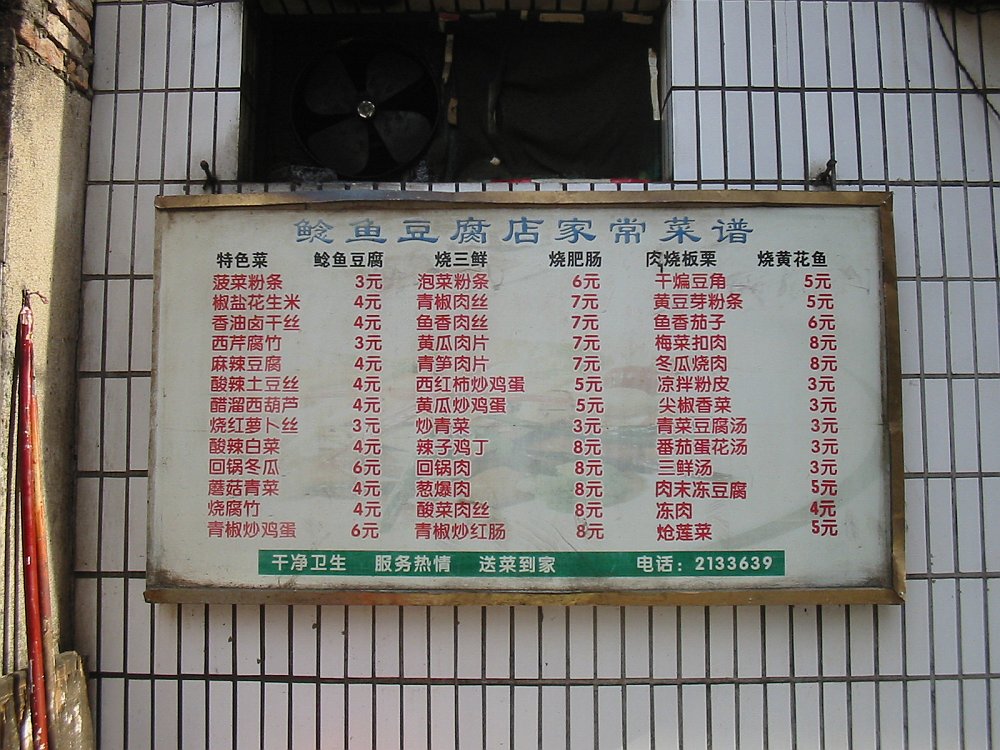 鲶鱼豆腐店家常菜谱
特色菜 鲶鱼豆腐 烧三鲜 烧肥肠 肉烧板栗 烧黄花鱼
菠菜粉条 3元 泡菜粉条 6元 干煸豆角 5元
椒盐花生米 4元 青椒肉丝 7元 黄豆芽粉条 5元
香油卤干丝 4元 鱼香肉丝 7元 鱼香茄子 6元
西芹腐竹 3元 黄瓜肉片 7元 梅菜扣肉 8元
麻辣豆腐 4元 青笋肉片 7元 冬瓜烧肉 8元
酸辣土豆丝 4元 西红柿炒鸡蛋 5元 凉拌粉皮 3元
醋溜西葫芦 4元 黄瓜炒鸡蛋 5元 尖椒香菜 3元
烧红萝卜丝 3元 炒青菜 3元 青菜豆腐汤 3元
酸辣白菜 4元 辣子鸡丁 8元 番茄蛋花汤 3元
回锅冬瓜 6元 回锅肉 8元 三鲜汤 3元
蘑菇青菜 4元 葱爆肉 8元 肉末冻豆腐 5元
烧腐竹 4元 酸菜肉丝 8元 冻肉 4元
青椒炒鸡蛋 6元 青椒炒红肠 8元 炝莲菜 5元
干净卫生 服务热情 送菜到家 电话：2133639